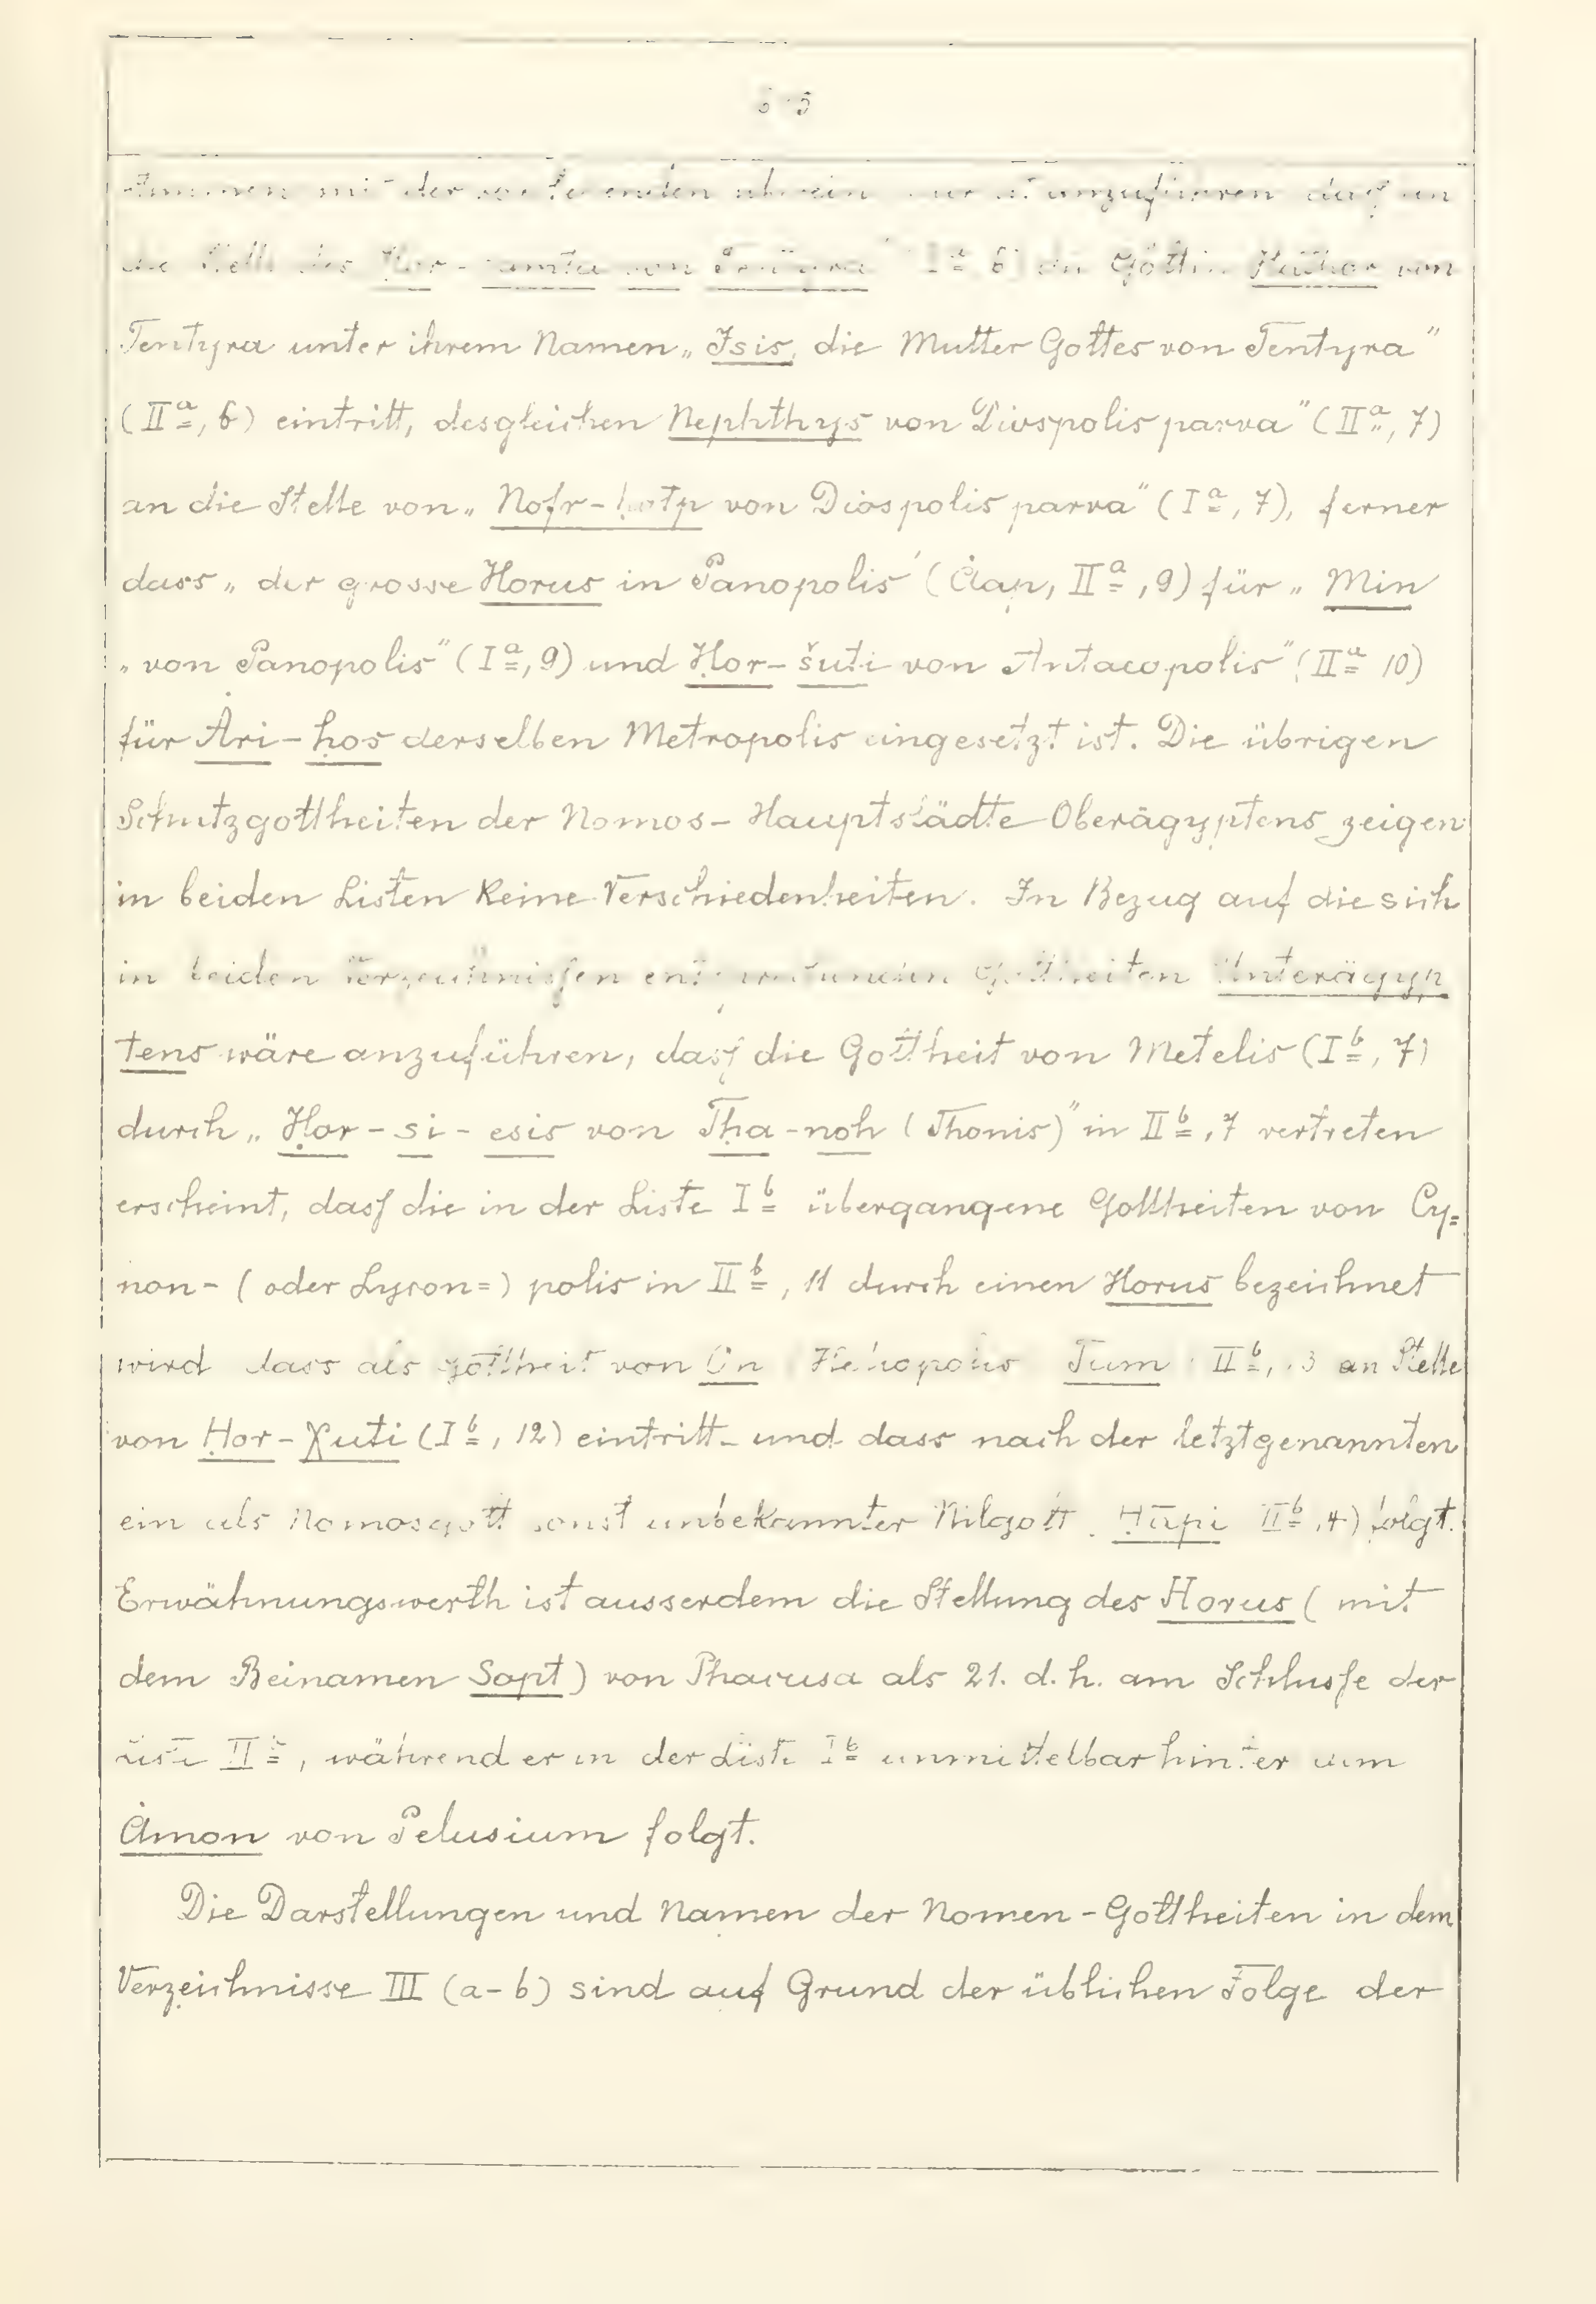 mit der überein anzuführen daſs an
die Stelle des Hor- von Tentyra" Iª 6) die Göttin Hathor von
Tentyra unter ihrem Namen „Isis, die Mutter Gottes von Tentyra"
(IIª, 6) eintritt, desgleichen Nephthys von Diospolis parva" (IIª, 7)
an die Stelle von „Nofr-hotp von Diospolis parva" (Iª, 7), ferner
dass „der grosse Horus in Panopolis" (Ȧap, IIª, 9) für „Min
„von Panopolis" (Iª, 9) und Ḥor-šuti von Antaeopolis" (IIª 10)
für Ȧri-ḥos derselben Metropolis eingesetzt ist. Die übrigen
Schutzgottheiten der Nomos-Hauptstädte Oberägyptens zeigen
in beiden Listen keine Verschiedenheiten. In Bezug auf die sich
in beiden Verzeichniſsen Gottheiten Unterägyp
tens wäre anzuführen, daſs die Gottheit von Metelis (Iᵇ, 7)
durch „Ḥor-si-esis von Tha-noh (Thonis)" in IIᵇ, 7 vertreten
erscheint, daſs die in der Liste Iᵇ übergangene Gottheiten von Cy=
non- (oder Lycon=) polis in IIᵇ, 11 durch einen Horus bezeichnet
wird dass als Gottheit von On Heliopolis Tum IIᵇ, 13 an Stelle
von Ḥor-Xuti (Iᵇ, 12) eintritt und dass nach der letztgenannten
ein als Nomosgott sonst unbekannter Nilgott Ḥāpi IIᵇ, 4) folgt.
Erwähnungswerth ist ausserdem die Stellung des Horus (mit
dem Beinamen Sopt) von Phacusa als 21. d. h. am Schluſse der
Liste IIᵇ, während er in der Liste Iᵇ unmittelbar hinter dem
Ȧmon von Pelusium folgt.
Die Darstellungen und Namen der Nomen-Gottheiten in dem
Verzeichnisse III (a-b) sind auf Grund der üblichen Folge der